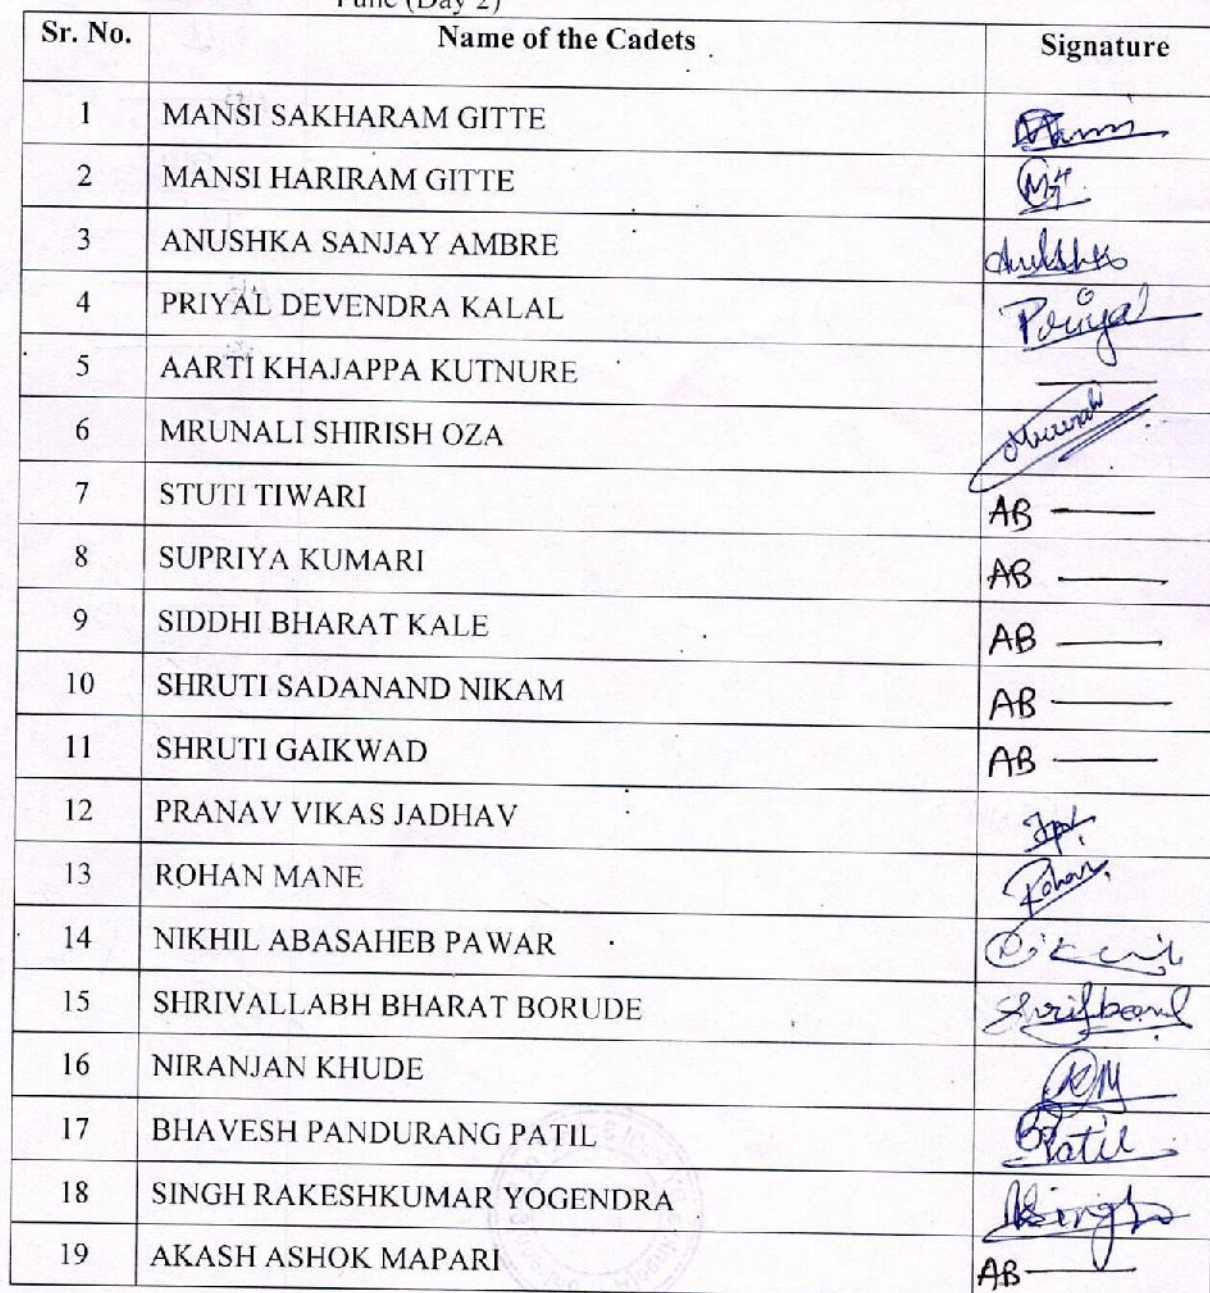 Pune (Day 2)
Sr. No. Name of the Cadets Signature
1 MANSI SAKHARAM GITTE
2 MANSI HARIRAM GITTE
3 ANUSHKA SANJAY AMBRE
4 PRIYAL DEVENDRA KALAL Priyal
5 AARTI KHAJAPPA KUTNURE
6 MRUNALI SHIRISH OZA
7 STUTI TIWARI AB
8 SUPRIYA KUMARI AB
9 SIDDHI BHARAT KALE AB
10 SHRUTI SADANAND NIKAM AB
11 SHRUTI GAIKWAD AB
12 PRANAV VIKAS JADHAV
13 ROHAN MANE Rohan
14 NIKHIL ABASAHEB PAWAR
15 SHRIVALLABH BHARAT BORUDE
16 NIRANJAN KHUDE
17 BHAVESH PANDURANG PATIL BPatil
18 SINGH RAKESHKUMAR YOGENDRA
19 AKASH ASHOK MAPARI AB